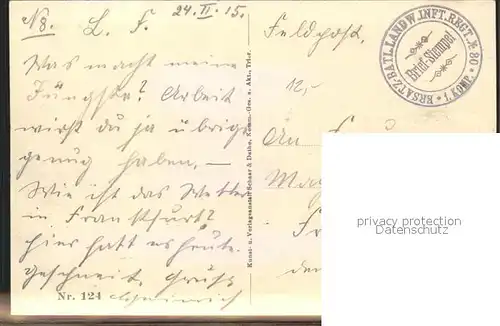 N8. L. F. 24. II. 15.
Was macht meine
Jüngste? Arbeit
wirst du ja übrig
genug haben, —
Wie ist das Wetter
in Frankfurt?
hier hatt es heute
geschneit. Gruß
Heinrich
Nr. 124
Kunst- u. Verlagsanstalt Schaar & Dathe, Komm.-Ges. a. Akt., Trier.
Feldpost.
12,-
ERSATZ-BATL. LANDW. INFT. REGT. № 80
* 1. KOMP. *
Brief-Stempel
An
Fr
den
privacy protection
Datenschutz